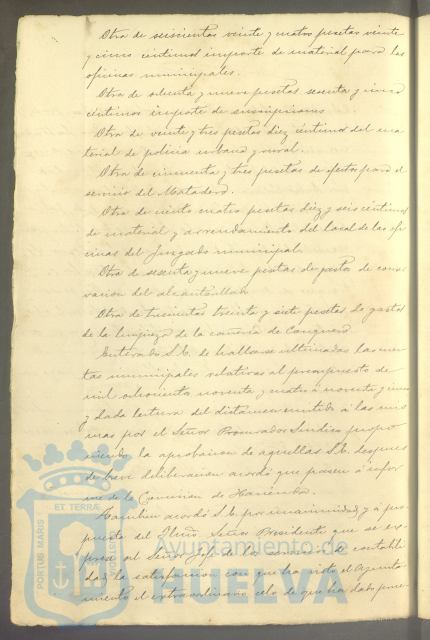 Otra de seiscientas veinte y cuatro pesetas veinte
y cinco céntimos importe de material para las
oficinas municipales.
Otra de ochenta y nueve pesetas sesenta y cinco
céntimos importe de suscripciones
Otra de veinte y tres pesetas diez céntimos del ma-
terial de policia urbana y rural.
Otra de cincuenta y tres pesetas de efectos para el
servicio del Matadero.
Otra de ciento cuatro pesetas diez y seis céntimos
de material y arrendamiento del local de las ofi-
cinas del Juzgado municipal.
Otra de sesenta y nueve pesetas de gastos de conser-
vacion del alcantarillado
Otra de trescientas treinta y siete pesetas de gastos
de la limpieza de la cañeria de Conquero.
Enterado S.E. de hallarse ultimadas las cuen-
tas municipales relativas al presupuesto de
mil ochocientos noventa y cuatro á noventa y cinco
y dada lectura del dictamen emitido á las mis-
mas por el Señor Procurador Sindico propo-
niendo la aprobacion de aquellas S.E. despues
de breve deliberacion acordó que pasen á infor-
me de la Comision de Hacienda.
Tambien acordó S.E. por unanimidad y á pro-
puesta del Señor Presidente que se ex-
prese al Señor Jefe de la Seccion de contabili-
dad la satisfaccion con que ha visto el Ayunta-
miento el extraordinario celo de que ha dado
PORTUS MARIS ET TERRÆ CUSTODIA
Ayuntamiento de
HUELVA